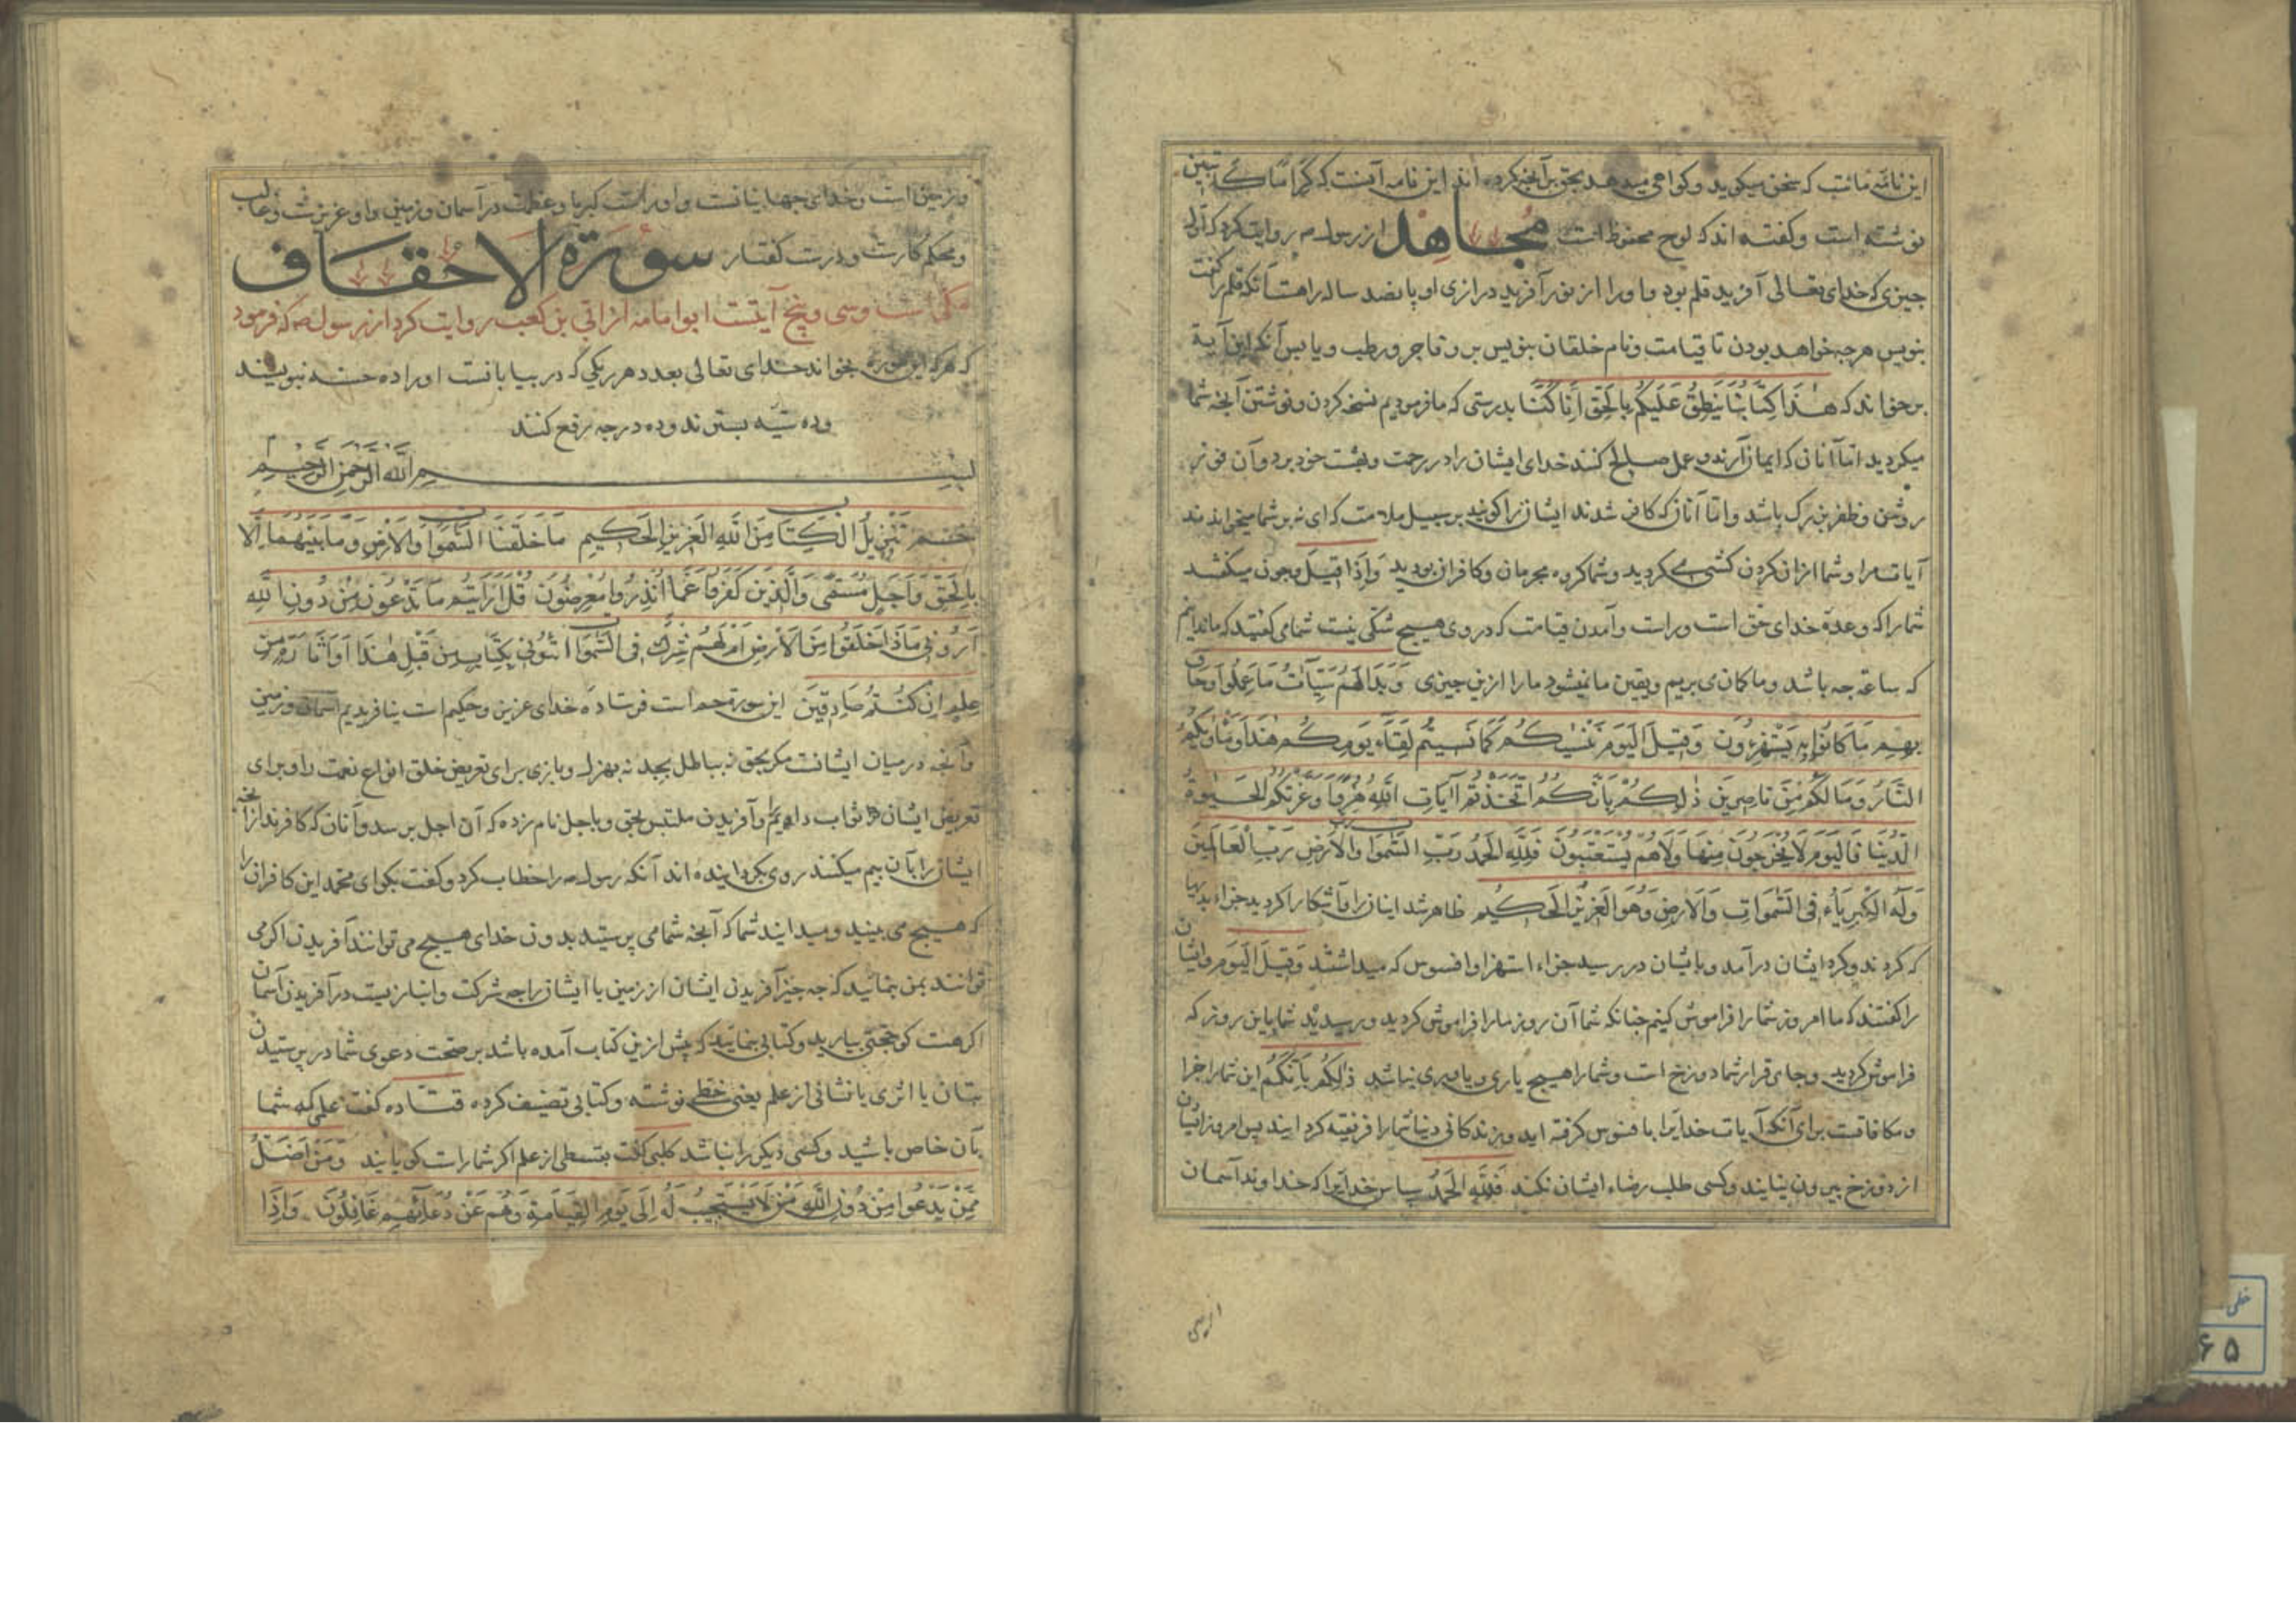 این نامهٔ ماست که سخن میکوید و کواهی میدهد بحق بر آنچه کرده‌اند این نامه آنست که کراماً کاتبین
نوشته است و کفته‌اند که لوح محفوظ است مجاهد از رسول م روایت کرد که اول
جیزی که خدای تعالی آفرید قلم بود و او را از نور آفرید درازی او پانصد ساله راهست آنکه قلم را کفت
بنویس هرجه خواهد بودن تا قیامت و نام خلقان بنویس بر و فاجر و رطب و یابس آنکه این آیة
برخواند که هٰذَا كِتَابُنَا يَنطِقُ عَلَيْكُمْ بِالْحَقِّ اِنَّا كُنَّا بدرستی که ما فرمودیم نسخه کردن و نوشتن آنچه شما
میکردید اما آنان که ایمان آرند و عمل صالح کنند خدای ایشان را در رحمت و بهشت خود برد و آن فوز
روشن و ظفر بزرک باشد و اما آنان که کافر شدند ایشان را کویند بر سبیل ملامت که ای نه بر شما میخواندند
آیات مرا و شما از ان کردن کشی می کردید و شما کروه مجرمان و کافران بودید وَاِذَا قِيلَ و جون میکفتند
شما را که وعدهٔ خدای حق است و راست و آمدن قیامت که در وی هیچ شکی نیست شما می کفتید که ما ندانیم
که ساعة جه باشد و ما کمان می بریم و یقین ما نمیشود ما را ازین جیزی وَبَدَا لَهُمْ سَيِّئَاتُ مَا عَمِلُوا وَحَاقَ
بِهِمْ مَا كَانُوا بِهِ يَسْتَهْزِءُونَ وَقِيلَ الْيَوْمَ نَنْسٰيكُمْ كَمَا نَسِيتُمْ لِقَاءَ يَوْمِكُمْ هٰذَا وَمَأْوٰيكُمُ
النَّارُ وَمَا لَكُمْ مِنْ نَاصِرِينَ ذٰلِكُمْ بِاَنَّكُمُ اتَّخَذْتُمْ آيَاتِ اللّٰهِ هُزُوًا وَغَرَّتْكُمُ الْحَيٰوةُ
الدُّنْيَا فَالْيَوْمَ لَا يُخْرَجُونَ مِنْهَا وَلَا هُمْ يُسْتَعْتَبُونَ فَلِلّٰهِ الْحَمْدُ رَبِّ السَّمٰوَاتِ وَالْاَرْضِ رَبِّ الْعَالَمِينَ
وَلَهُ الْكِبْرِيَاءُ فِي السَّمٰوَاتِ وَالْاَرْضِ وَهُوَ الْعَزِيزُ الْحَكِيمُ ظاهر شد اینان را و آشکارا کردید جزاء بدیها
که کردند و کرد ایشان درآمد و بایشان در رسید جزاء استهزا و افسوس که میداشتند وَقِيلَ الْيَوْمَ و ایشان
را کفتند که ما امروز شما را فراموش کنیم جنانکه شما آن روز ما را فراموش کردید و رسیدید شما باین روز که
فراموش کردید و جای قرار شما دوزخ است و شما را هیچ یاری و یاوری نباشد ذٰلِكُمْ بِاَنَّكُمُ این شما را جزا
و مکافاتست برای آنکه آیات خدایرا بافسوس کرفته اید و زندکانی دنیا شما را فریفته کردانید پس امروز ایشان
از دوزخ بیرون نیایند و کسی طلب رضاء ایشان نکند فَلِلّٰهِ الْحَمْدُ سپاس خدایرا که خداوند آسمان
و زمین است و خدای جهانیانست و او راست کبریا و عظمت در آسمان و زمین و او عزیزست و غالب
و محکم کارست و درست کفتار سورة الاحقاف
مکی است و سی و پنج آیتست ابو امامه از ابی بن کعب روایت کرد از رسول ص که فرمود
که هرکه این سوره بخواند خدای تعالی بعدد هر ریکی که در بیابانست او را ده حسنه بنویسند
و ده سیه بسترند و ده درجه رفع کنند
بسم الله الرحمن الرحیم
حٰم تَنْزِيلُ الْكِتَابِ مِنَ اللّٰهِ الْعَزِيزِ الْحَكِيمِ مَا خَلَقْنَا السَّمٰوَاتِ وَالْاَرْضَ وَمَا بَيْنَهُمَا اِلَّا
بِالْحَقِّ وَاَجَلٍ مُسَمًّى وَالَّذِينَ كَفَرُوا عَمَّا اُنْذِرُوا مُعْرِضُونَ قُلْ اَرَاَيْتُمْ مَا تَدْعُونَ مِنْ دُونِ اللّٰهِ
اَرُونِي مَاذَا خَلَقُوا مِنَ الْاَرْضِ اَمْ لَهُمْ شِرْكٌ فِي السَّمٰوَاتِ ائْتُونِي بِكِتَابٍ مِنْ قَبْلِ هٰذَا اَوْ اَثَارَةٍ مِنْ
عِلْمٍ اِنْ كُنْتُمْ صَادِقِينَ این سورة حم است فرستاده خدای عزیز و حکیم است نیافریدیم آسمان و زمین
و آنچه در میان ایشانست مکر بحق نه بباطل بجد نه بهزل و بازی برای تعریض خلق انواع نعمت را و برای
تعریض ایشان ثواب دادیم و آفریدن ملتبس بحق و باجل نام زده که آن اجل برسد و آنان که کافرند از آنچه
ایشان را بآن بیم میکنند روی بکردانیده اند آنکه رسول ص را خطاب کرد و کفت بکو ای محمد این کافران را
که هیچ می بینید و میدانید شما که آنچه شما می پرستید بدون خدای هیچ می توانند آفریدن اکر می
توانند بمن بنمائید که جه جیز آفریدن ایشان از زمین یا ایشان را جه شرکت و انبازیست در آفریدن آسمان
اکر هست کو حجتی بیارید و کتابی بنمایید که پیش ازین کتاب آمده باشد بر صحت دعوی شما در پرستیدن
بتان یا اثری یا نشانی از علم یعنی خطی نوشته و کتابی تصنیف کرده قتاده کفت علمی که شما
بآن خاص باشید و کسی دیکر را نباشد کلبی کفت بقسطی از علم اکر شما راست کویانید وَمَنْ اَضَلُّ
مِمَّنْ يَدْعُوا مِنْ دُونِ اللّٰهِ مَنْ لَا يَسْتَجِيبُ لَهُ اِلَى يَوْمِ الْقِيَامَةِ وَهُمْ عَنْ دُعَائِهِمْ غَافِلُونَ وَاِذَا
خطی
۶۵